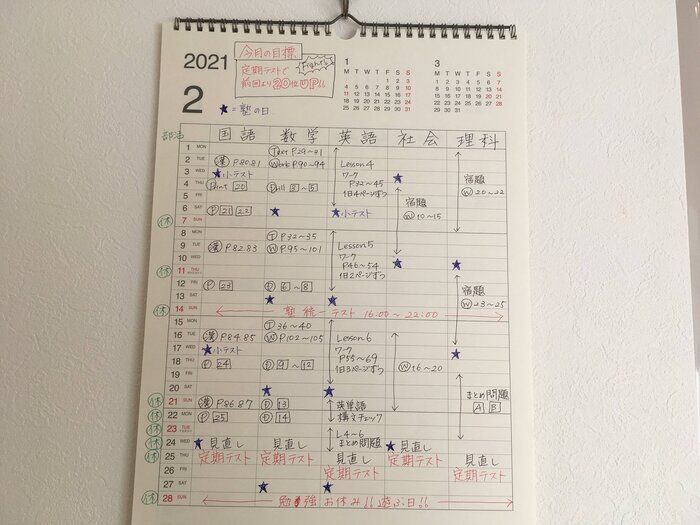 2021
2
今月の目標
定期テストで
前回より20位UP!!
Fight!!
★=塾の日
1
M T W T F S S
1 2 3
4 5 6 7 8 9 10
11 12 13 14 15 16 17
18 19 20 21 22 23 24
25 26 27 28 29 30 31
3
M T W T F S S
1 2 3 4 5 6 7
8 9 10 11 12 13 14
15 16 17 18 19 20 21
22 23 24 25 26 27 28
29 30 31
部活 国語 数学 英語 社会 理科
1 MON Ⓣext P29~31
2 TUE 漢 P.80.81 Ⓦork P.90~94 Lesson4
3 WED ★小テスト ワーク ★ 宿題
4 THU Ⓟrint 20 Ⓓrill 3~5 P32~45 Ⓦ20~22
5 FRI 1日4ページずつ 宿題
6 SAT Ⓟ 21 22 ★ ★小テスト Ⓦ10~15
休 7 SUN
8 MON Ⓣ P.32~35
9 TUE 漢 P.82.83 Ⓦ P.95~101 Lesson5
10 WED ワーク
休 11 THU P46~54 ★ ★
12 FRI Ⓟ 23 Ⓓ 6~8 1日2ページずつ 宿題
13 SAT ★ ★ Ⓦ23~25
休 14 SUN 塾 統一テスト 16:00~22:00
15 MON Ⓣ 36~40
16 TUE 漢 P.84.85 Ⓦ P.102~105 Lesson6
17 WED ★小テスト ワーク ★
18 THU Ⓟ 24 Ⓓ 9~12 P55~69 Ⓦ16~20
19 FRI 1日3ページずつ
20 SAT ★ ★
休 21 SUN 漢 P.86.87 Ⓓ 13 英単語 まとめ問題
休 22 MON Ⓟ 25 Ⓓ 14 構文チェック A B
休 23 TUE L4~6
休 24 WED ★見直し 見直し まとめ問題 ★見直し
休 25 THU 定期テスト 定期テスト 見直し 定期テスト 見直し
26 FRI 定期テスト 定期テスト
27 SAT ★ ★
休 28 SUN 勉強お休み!!遊ぶ日!!